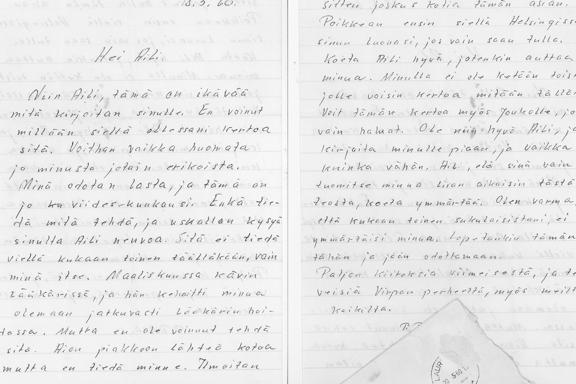 8.5.60.
Hei Aili.
Niin Aili, tämä on ikävää
mitä kirjoitan sinulle. En voinut
millään siellä ollessani kertoa
sitä. Voithan vaikka huomata
jo minusta jotain erikoista.
Minä odotan lasta, ja tämä on
jo ku viides kuukausi. Enkä tie-
dä mitä tehdä, ja uskallan kysyä
sinulta Aili neuvoa. Sitä ei tiedä
vielä kukaan toinen täälläkään, vain
minä itse. Maaliskuussa kävin
lääkärissä, ja hän kehoitti minua
olemaan jatkuvasti lääkärin hoi-
dossa. Mutta en ole voinut tehdä
sitä. Aion piakkoin lähteä kotoa
mutta en tiedä minne. Ilmoitan
sitten joskus kotia tämän asian.
Poikkean ensin siellä Helsingissä
sinun luonasi, jos vain saan tulla.
Koeta Aili hyvä, jotenkin auttaa
minua. Minulla ei ole ketään tois
jolle voisin kertoa mitään tällä
Voit tämän kertoa myös Joukolle, jo
vain haluat. Ole niin hyvä Aili, ja
kirjoita minulle pian, ja vaikka
kuinka vähän. Aili, elä sinä vain
tuomitse minua liian aikaisin tästä
teosta, koeta ymmärtää. Olen varma,
että kukaan toinen sukulaisistani, ei
ymmärtäisi minua. Lopetankin tämän
tähän ja jään odottamaan.
Paljon kiitoksia viimeisestä, ja te
veisiä Virpan perheeltä, myös meilt
kaikilta.